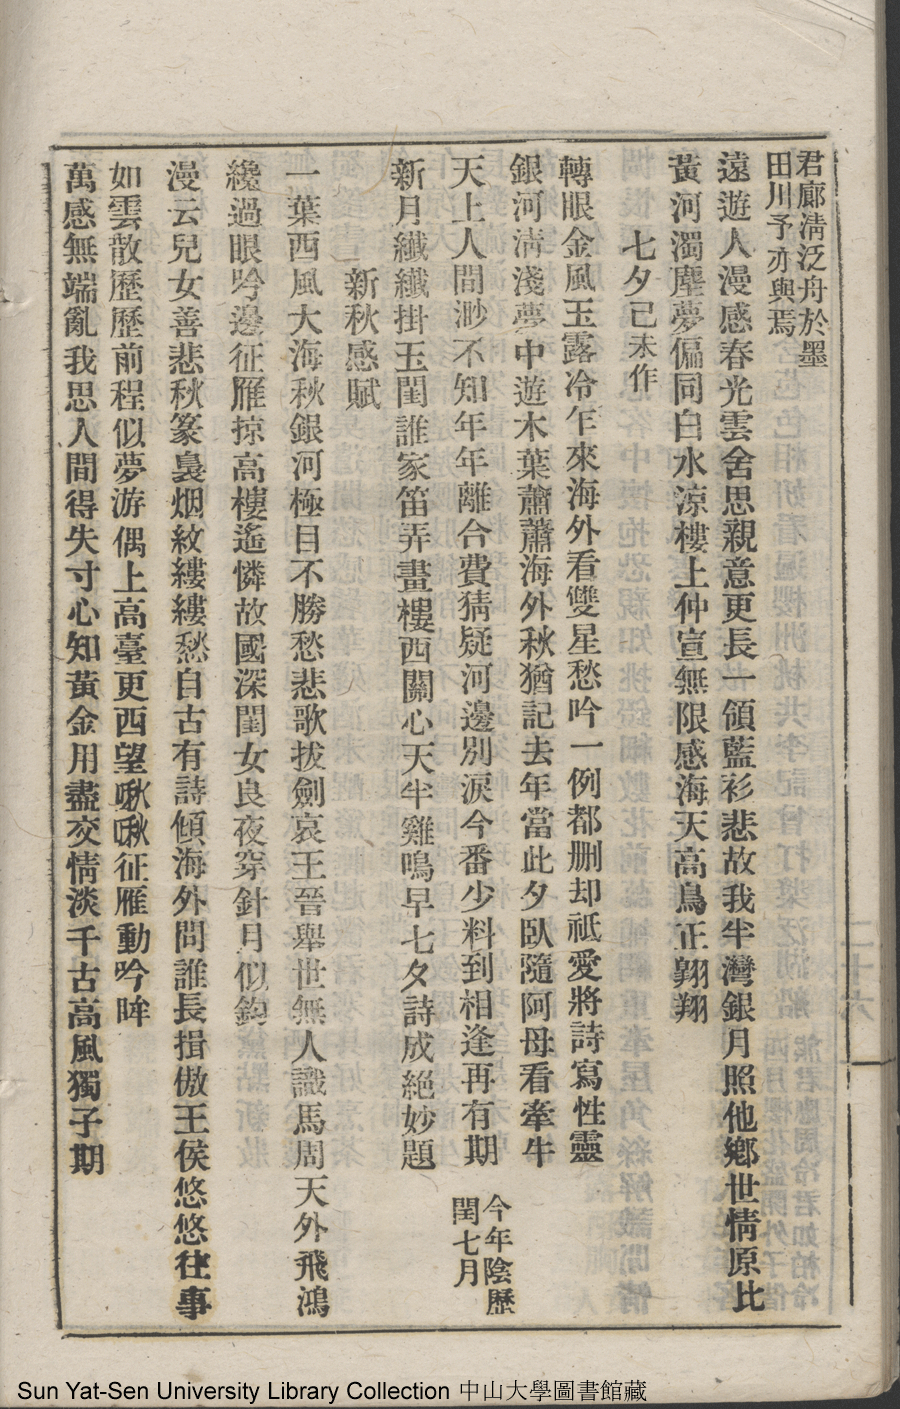 君廊淸泛舟於墨
田川予亦與焉
遠遊人漫感春光雲舍思親意更長一領藍衫悲故我半灣銀月照他鄉世情原比
黃河濁塵夢偏同白水涼樓上仲宣無限感海天高鳥正翺翔
七夕己未作
轉眼金風玉露冷乍來海外看雙星愁吟一例都删却祗愛將詩寫性靈
銀河淸淺夢中遊木葉蕭蕭海外秋猶記去年當此夕臥隨阿母看牽牛
天上人間渺不知年年離合費猜疑河邊別淚今番少料到相逢再有期
今年陰歷
閏七月
新月纖纖掛玉閨誰家笛弄畫樓西關心天半雞鳴早七夕詩成絕妙題
新秋感賦
一葉西風大海秋銀河極目不勝愁悲歌拔劍哀王晉舉世無人識馬周天外飛鴻
纔過眼吟邊征雁掠高樓遙憐故國深閨女良夜穿針月似鈎
漫云兒女善悲秋篆裊烟紋縷縷愁自古有詩傾海外問誰長揖傲王侯悠悠往事
如雲散歷歷前程似夢游偶上高臺更西望啾啾征雁動吟眸
萬感無端亂我思人間得失寸心知黃金用盡交情淡千古高風獨子期
Sun Yat-Sen University Library Collection 中山大學圖書館藏